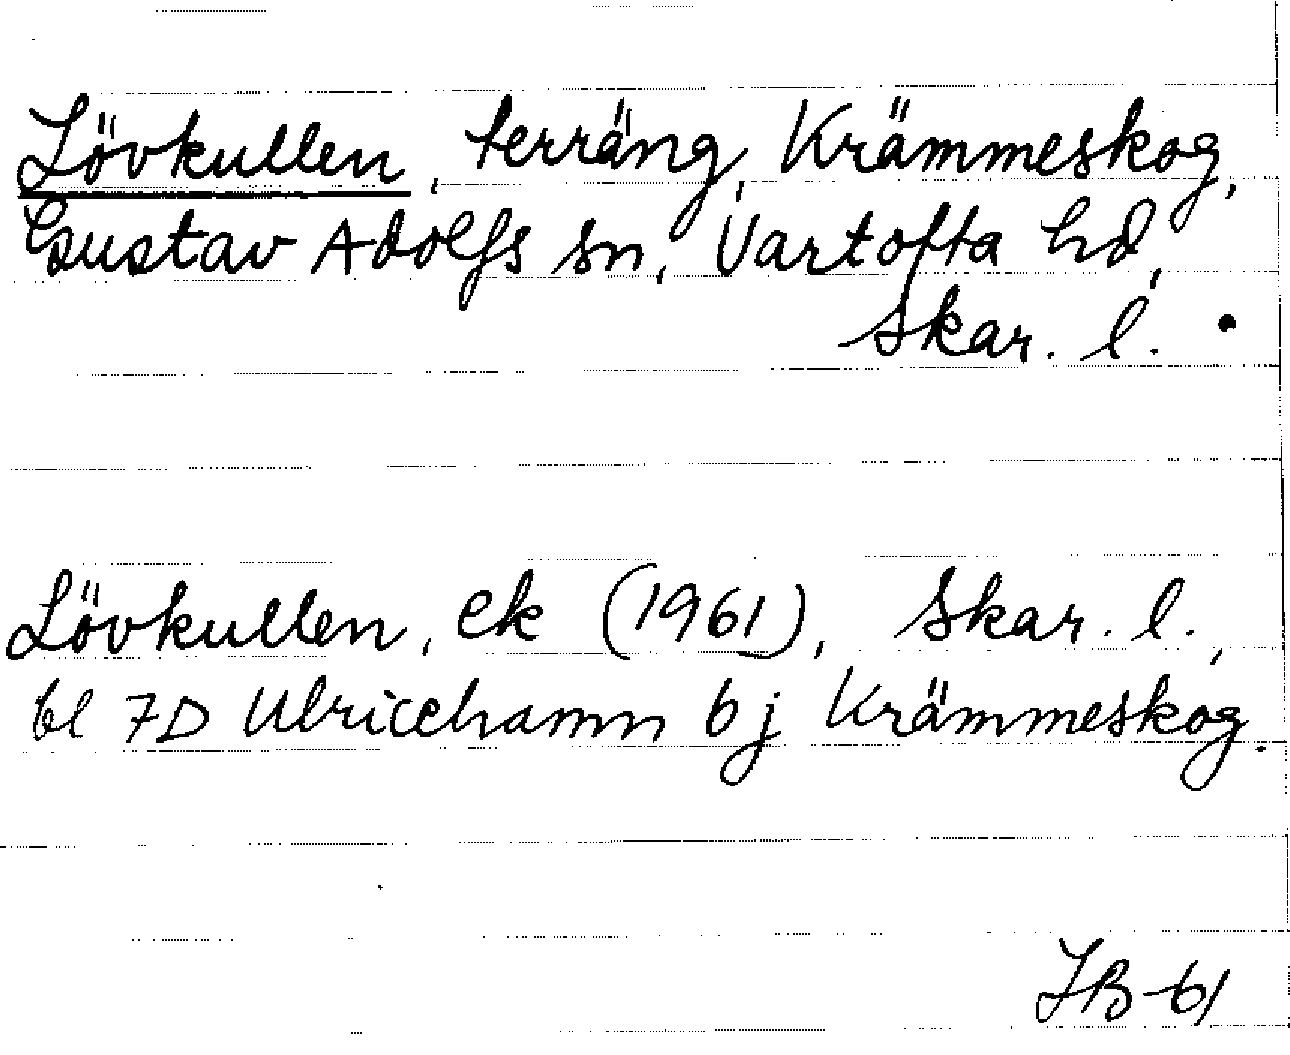 Lövkullen, terräng, Krämmeskog,
Gustav Adolfs sn, Vartofta hd,
Skar. l.
Lövkullen, ek (1961), Skar. l.,
bl 7D Ulricehamn b j Krämmeskog.
IB-61